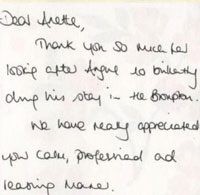 Dear Anette,
Thank you so much for
looking after Angus so brilliantly
during his stay in the Brompton.
We have really appreciated
your calm, professional and
reassuring manner.